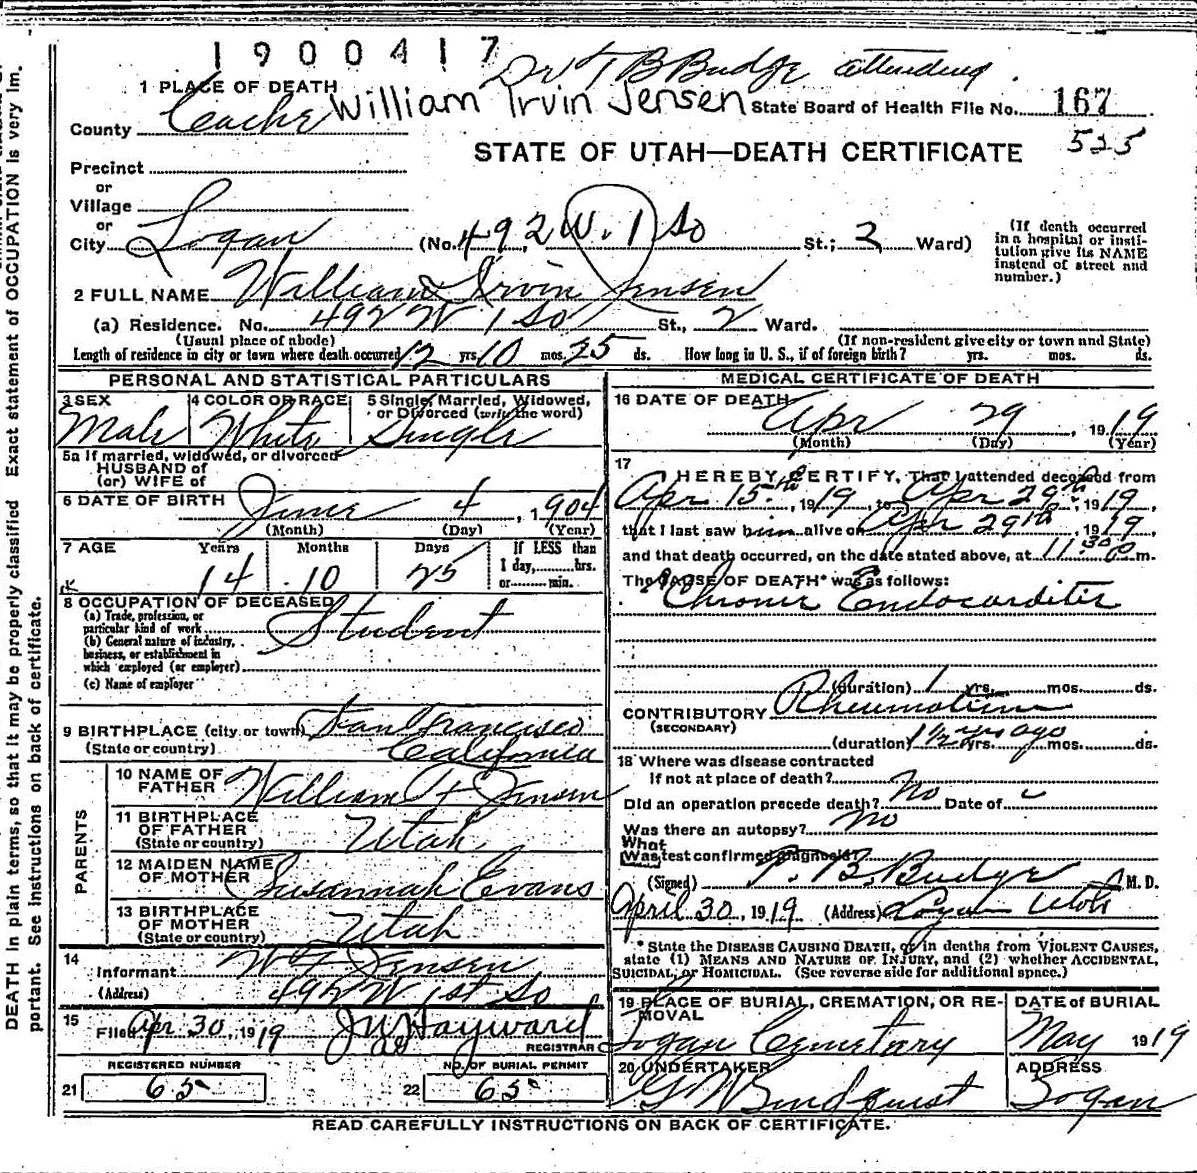 1900417
Dr T B Budge attending.
1 PLACE OF DEATH
William Irvin Jensen State Board of Health File No. 167
County Cache
525
STATE OF UTAH—DEATH CERTIFICATE
Precinct
or
Village
or
City Logan (No. 492 W. 1 So St.; 2 Ward) (If death occurred in a hospital or insti-
tution give its NAME instead of street and number.)
2 FULL NAME William Irvin Jensen
(a) Residence. No. 492 W 1 So St., 2 Ward.
(Usual place of abode) (If non-resident give city or town and State)
Length of residence in city or town where death occurred 12 yrs. 10 mos. 25 ds. How long in U. S., if of foreign birth? yrs. mos. ds.
PERSONAL AND STATISTICAL PARTICULARS
3 SEX Male 4 COLOR OR RACE White 5 Single, Married, Widowed, or Divorced (write the word) Single
5a If married, widowed, or divorced
HUSBAND of
(or) WIFE of
6 DATE OF BIRTH June 4, 1904
(Month) (Day) (Year)
7 AGE Years Months Days If LESS than
14 10 25 1 day,.....hrs.
or.....min.
8 OCCUPATION OF DECEASED
(a) Trade, profession, or
particular kind of work Student
(b) General nature of industry,
business, or establishment in
which employed (or employer)
(c) Name of employer
9 BIRTHPLACE (city or town) San Francisco
(State or country) California
PARENTS
10 NAME OF FATHER William F Jensen
11 BIRTHPLACE OF FATHER (State or country) Utah
12 MAIDEN NAME OF MOTHER Susannah Evans
13 BIRTHPLACE OF MOTHER (State or country) Utah
14 Informant W F Jensen
(Address) 492 W 1st So
15 Filed Apr 30, 1919
Hayward
REGISTRAR
REGISTERED NUMBER NO. OF BURIAL PERMIT
21 65 22 65
MEDICAL CERTIFICATE OF DEATH
16 DATE OF DEATH Apr 29, 1919
(Month) (Day) (Year)
17 I HEREBY CERTIFY, That I attended deceased from
Apr 15th, 1919, to Apr 29th, 1919,
that I last saw him alive on Apr 29th, 1919,
and that death occurred, on the date stated above, at 11:30 P.m.
The CAUSE OF DEATH* was as follows:
Chronic Endocarditis
(duration) 1 yrs. mos. ds.
CONTRIBUTORY Rheumatism
(SECONDARY)
(duration) 1½ yrs ago yrs. mos. ds.
18 Where was disease contracted
if not at place of death? No
Did an operation precede death? No Date of
Was there an autopsy? No
What
test confirmed diagnosis?
(Signed) T. B. Budge M. D.
April 30, 1919 (Address) Logan Utah
* State the DISEASE CAUSING DEATH, or in deaths from VIOLENT CAUSES,
state (1) MEANS AND NATURE OF INJURY, and (2) whether ACCIDENTAL,
SUICIDAL, or HOMICIDAL. (See reverse side for additional space.)
19 PLACE OF BURIAL, CREMATION, OR RE-
MOVAL
Logan Cemetary
DATE of BURIAL
May 1919
20 UNDERTAKER
G W Lindquist
ADDRESS
Logan
READ CAREFULLY INSTRUCTIONS ON BACK OF CERTIFICATE.
DEATH in plain terms, so that it may be properly classified Exact statement of OCCUPATION is very im-
portant. See instructions on back of certificate.